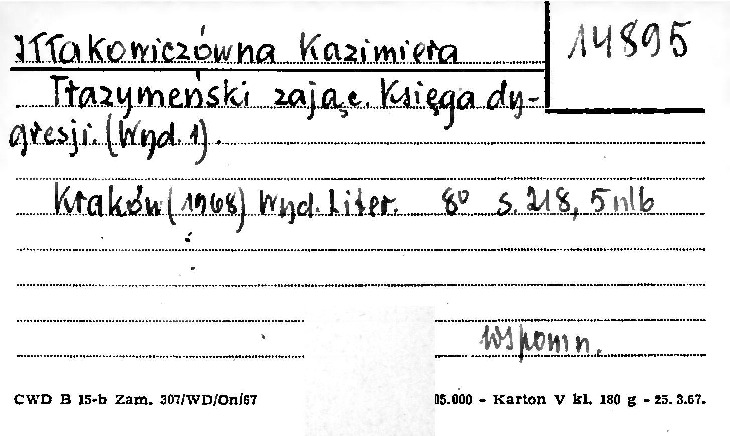 Iłłakowiczówna Kazimiera
14895
Trazymeński zając. Księga dy-
gresji. (Wyd. 1).
Kraków (1968) Wyd. Liter. 8° s. 218, 5 nlb
wspomn.
CWD B 15-b Zam. 307/WD/On/67 05.000 - Karton V kl. 180 g - 25. 3.67.